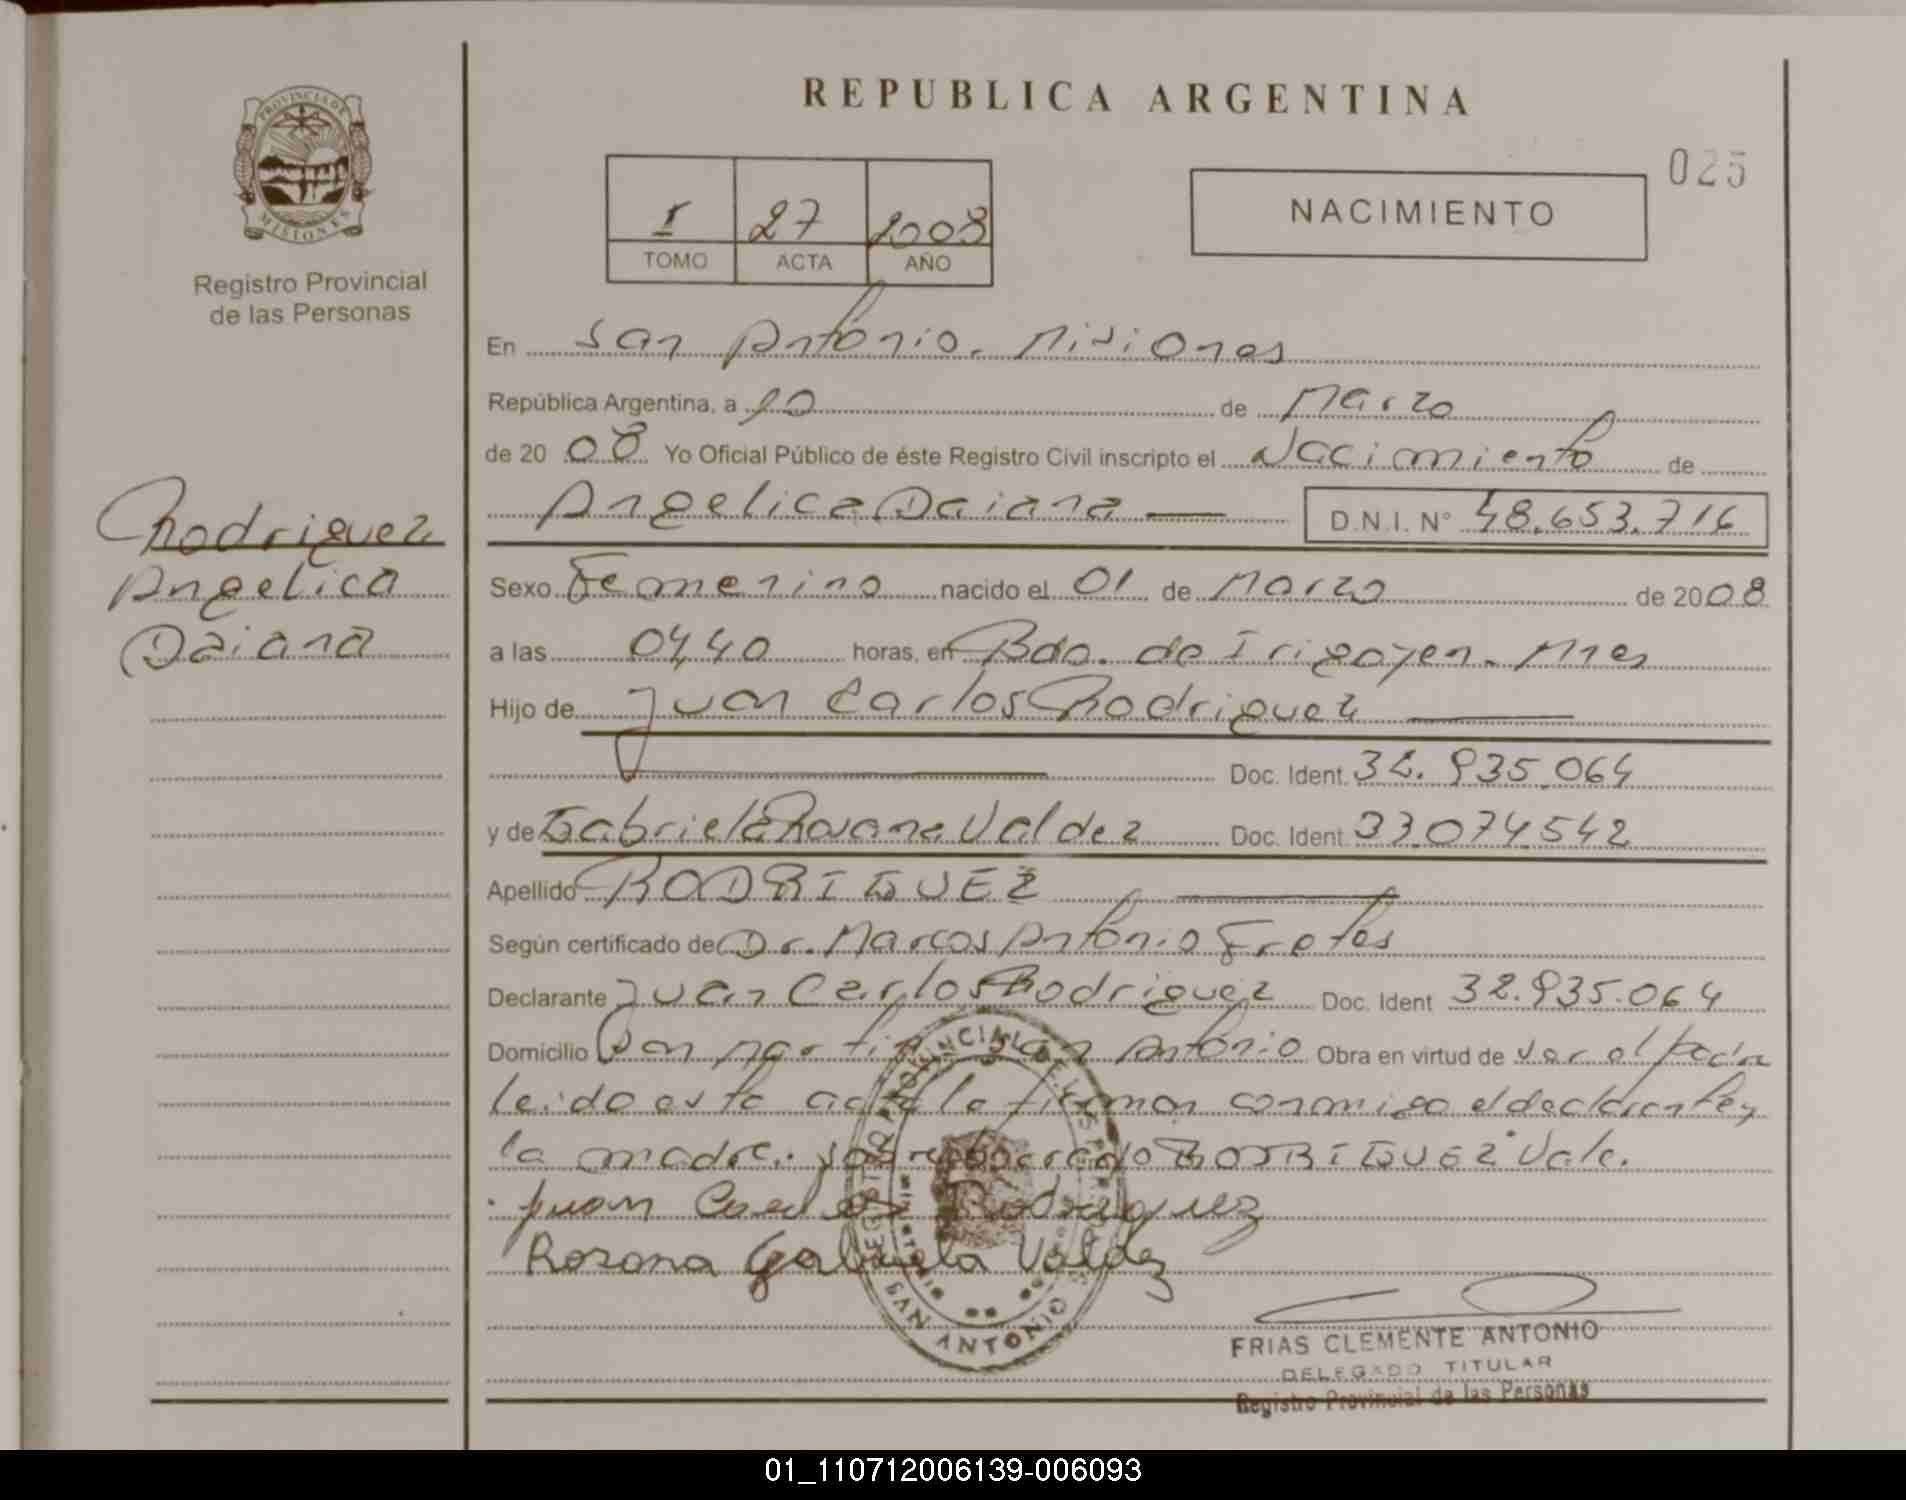 PROVINCIA DE
MISIONES
Registro Provincial
de las Personas
Rodriguez
Angelica
Daiana
REPUBLICA ARGENTINA
025
I 27 2008
TOMO ACTA AÑO
NACIMIENTO
En San Antonio. Misiones
República Argentina, a 10 de Marzo
de 20 08 Yo Oficial Público de éste Registro Civil inscripto el Nacimiento de
Angelica Daiana D.N.I. N° 48.653.716
Sexo Femenino nacido el 01 de Marzo de 2008
a las 04,40 horas, en Bdo. de Irigoyen. Mnes
Hijo de Juan Carlos Rodriguez
Doc. Ident. 32.935.064
y de Gabriela Rosana Valdez Doc. Ident. 33.074.542
Apellido RODRIGUEZ
Según certificado de Dr. Marcos Antonio Fretes
Declarante Juan Carlos Rodriguez Doc. Ident 32.935.064
Domicilio San Martin San Antonio Obra en virtud de ser el padre
leido esta acta la firman conmigo el declarante y
la madre. sobreborrado RODRIGUEZ Vale.
Juan Carlos Rodriguez
Rosana Gabriela Valdez
REGISTRO PROVINCIAL DE LAS PERSONAS
SAN ANTONIO
FRIAS CLEMENTE ANTONIO
DELEGADO TITULAR
Registro Provincial de las Personas
01_110712006139-006093